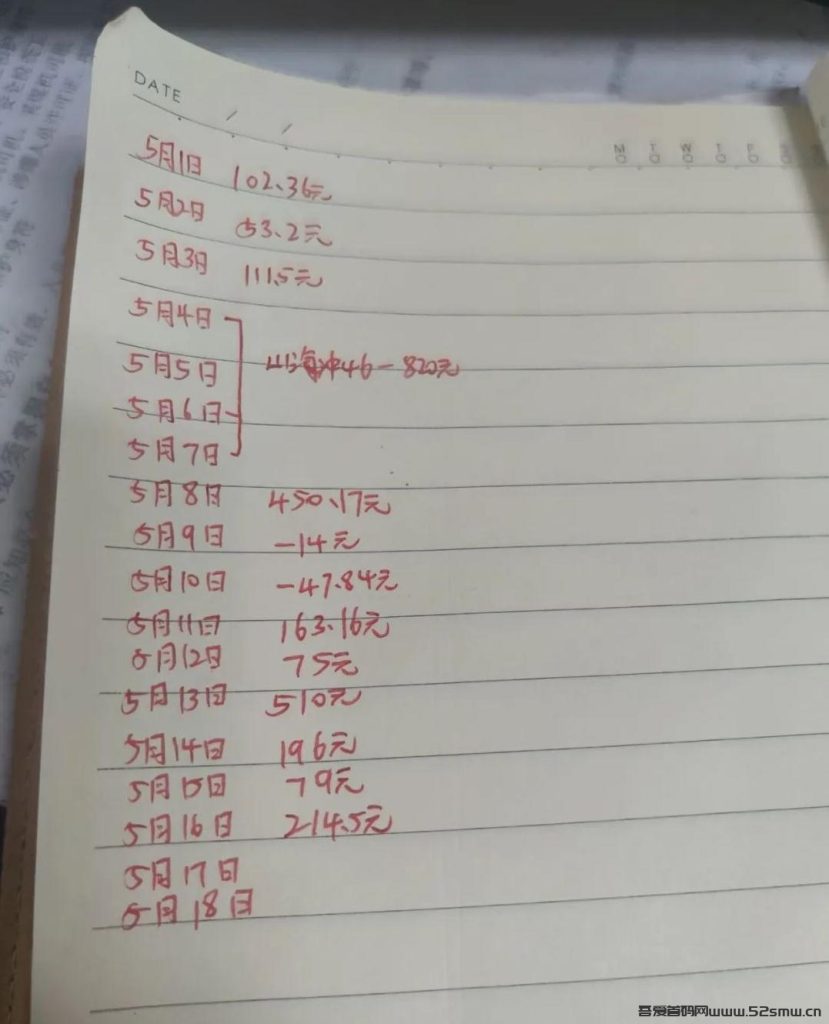 DATE / /
MO TO WO TO FO
5月1日 102.36元
5月2日 53.2元
5月3日 111.5元
5月4日
5月5日 山海冲46-820元
5月6日
5月7日
5月8日 450.17元
5月9日 -14元
5月10日 -47.84元
5月11日 163.16元
5月12日 75元
5月13日 510元
5月14日 196元
5月15日 79元
5月16日 214.5元
5月17日
5月18日
吾爱首码网www.52smw.cn